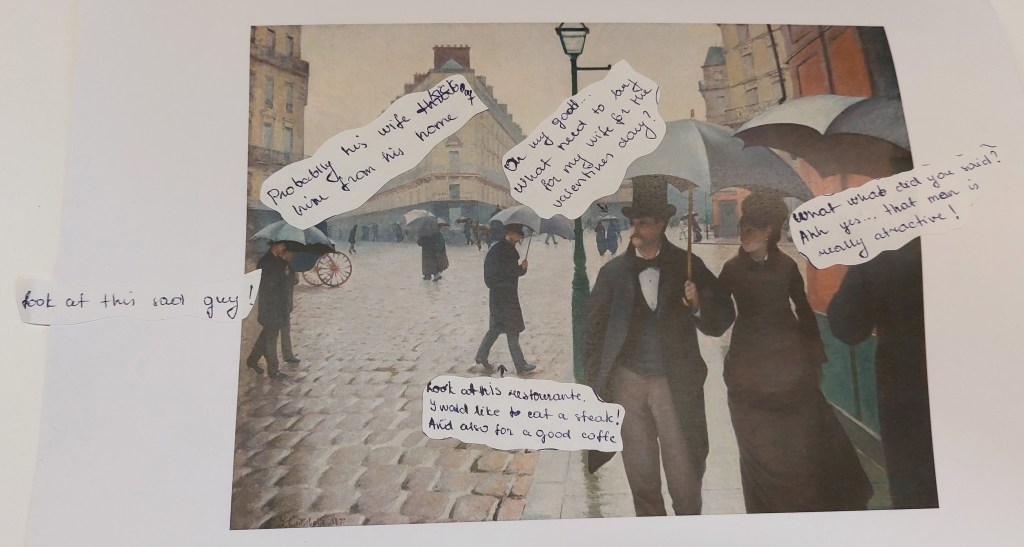 Probably his wife kick
him from his home
Oh my god...
what need to buy
for my wife for the
valentines day?
what what did you said?
Ahh yes... that man is
really atractive!
Look at this sad guy!
Look at this restourante,
I wold like to eat a steak!
And also for a good coffe